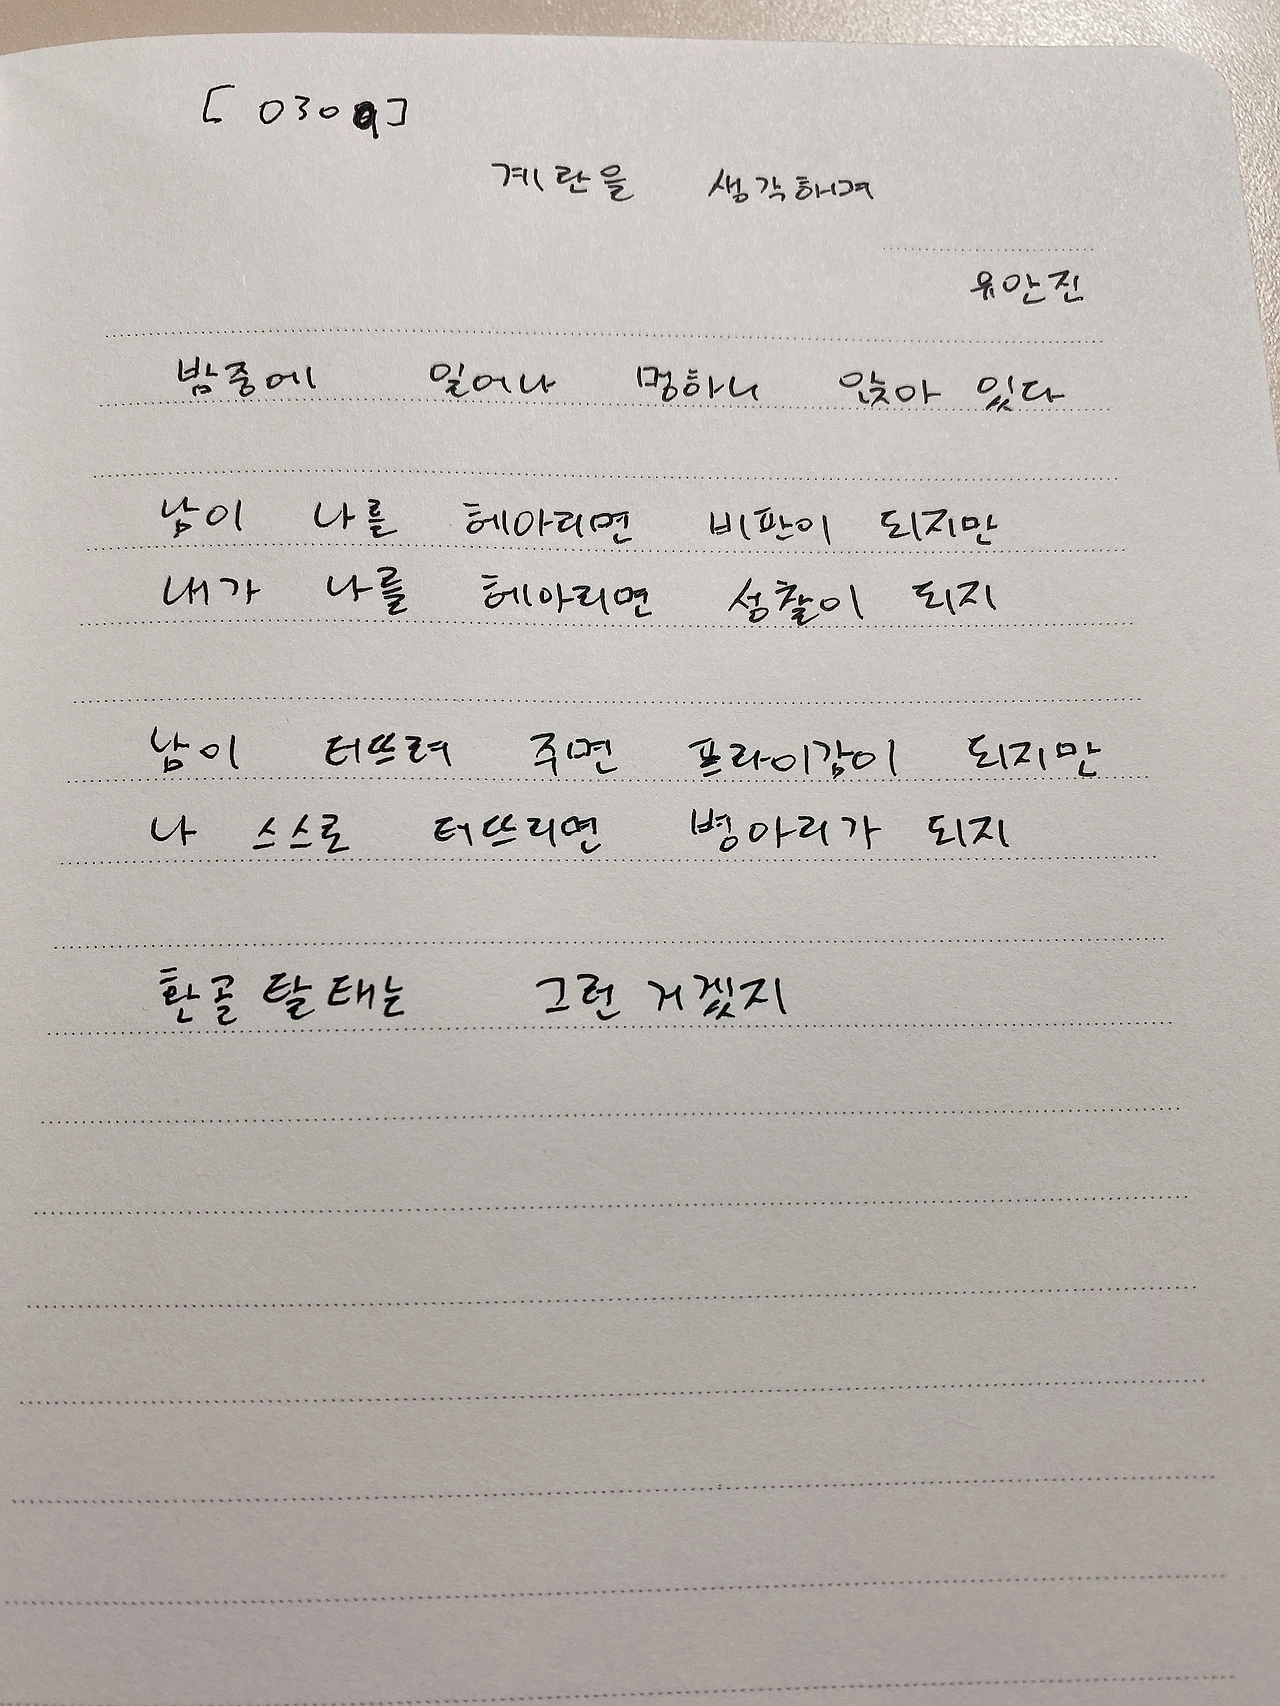 [0309]
계란을 생각하며
유안진
밤중에 일어나 멍하니 앉아 있다
남이 나를 헤아리면 비판이 되지만
내가 나를 헤아리면 성찰이 되지
남이 터뜨려 주면 프라이감이 되지만
나 스스로 터뜨리면 병아리가 되지
환골탈태는 그런 거겠지